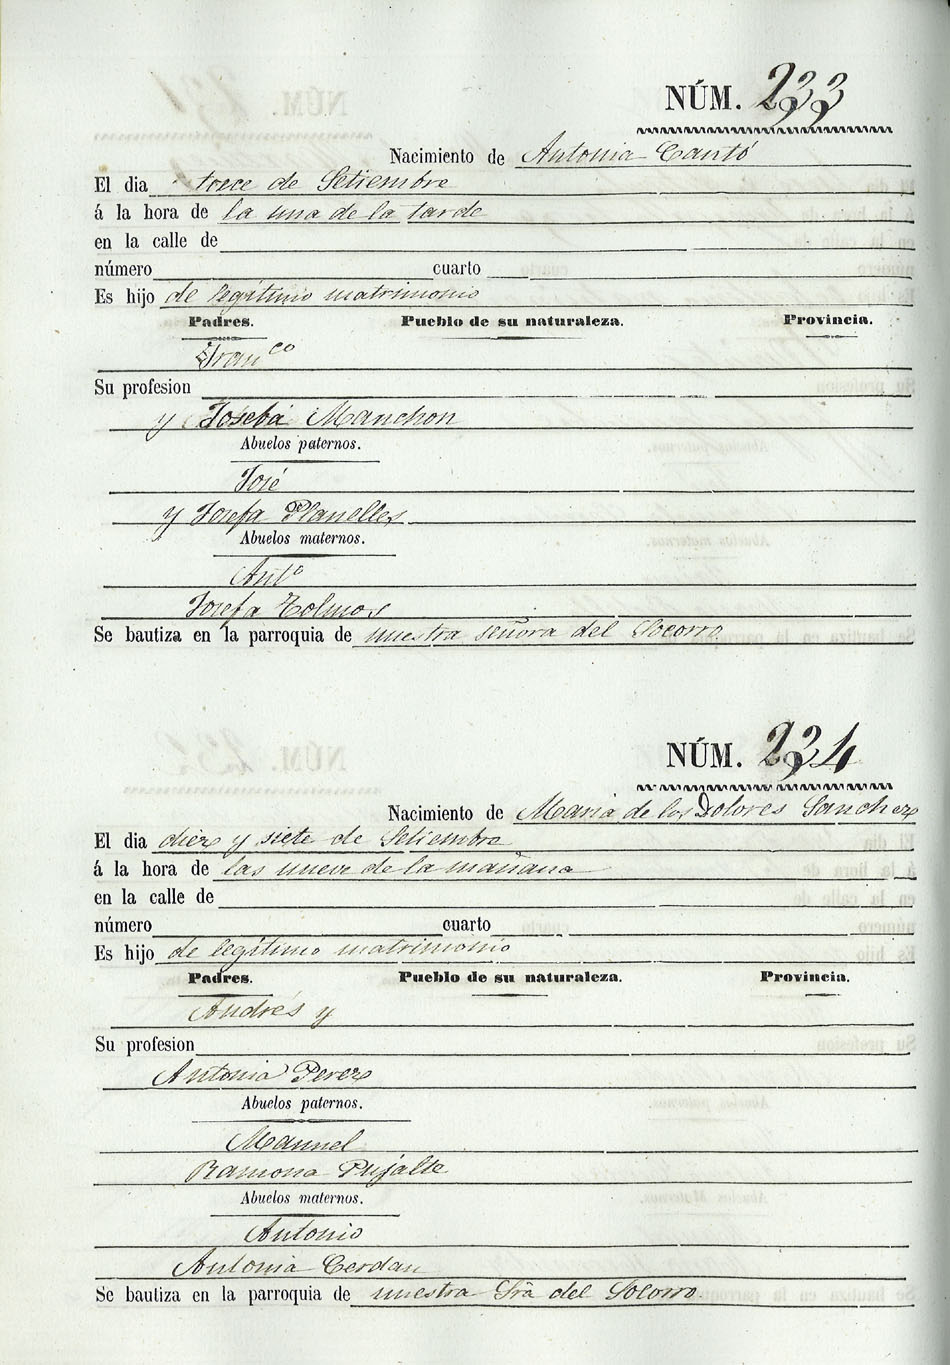 NÚM. 233
Nacimiento de Antonia Cantó
El dia trece de Setiembre
á la hora de la una de la tarde
en la calle de
número cuarto
Es hijo de legítimo matrimonio
Padres. Pueblo de su naturaleza. Provincia.
Franco
Su profesion
y Josefa Manchon
Abuelos paternos.
José
y Josefa Planelles
Abuelos maternos.
Anto
Josefa Tolmos
Se bautiza en la parroquia de nuestra señora del Socorro
NÚM. 234
Nacimiento de Maria de los Dolores Sanchez
El dia diez y siete de Setiembre
á la hora de las nueve de la mañana
en la calle de
número cuarto
Es hijo de legítimo matrimonio
Padres. Pueblo de su naturaleza. Provincia.
Andrés y
Su profesion
Antonia Perez
Abuelos paternos.
Manuel
Ramona Pujalte
Abuelos maternos.
Antonio
Antonia Cerdan
Se bautiza en la parroquia de nuestra Srã del Socorro